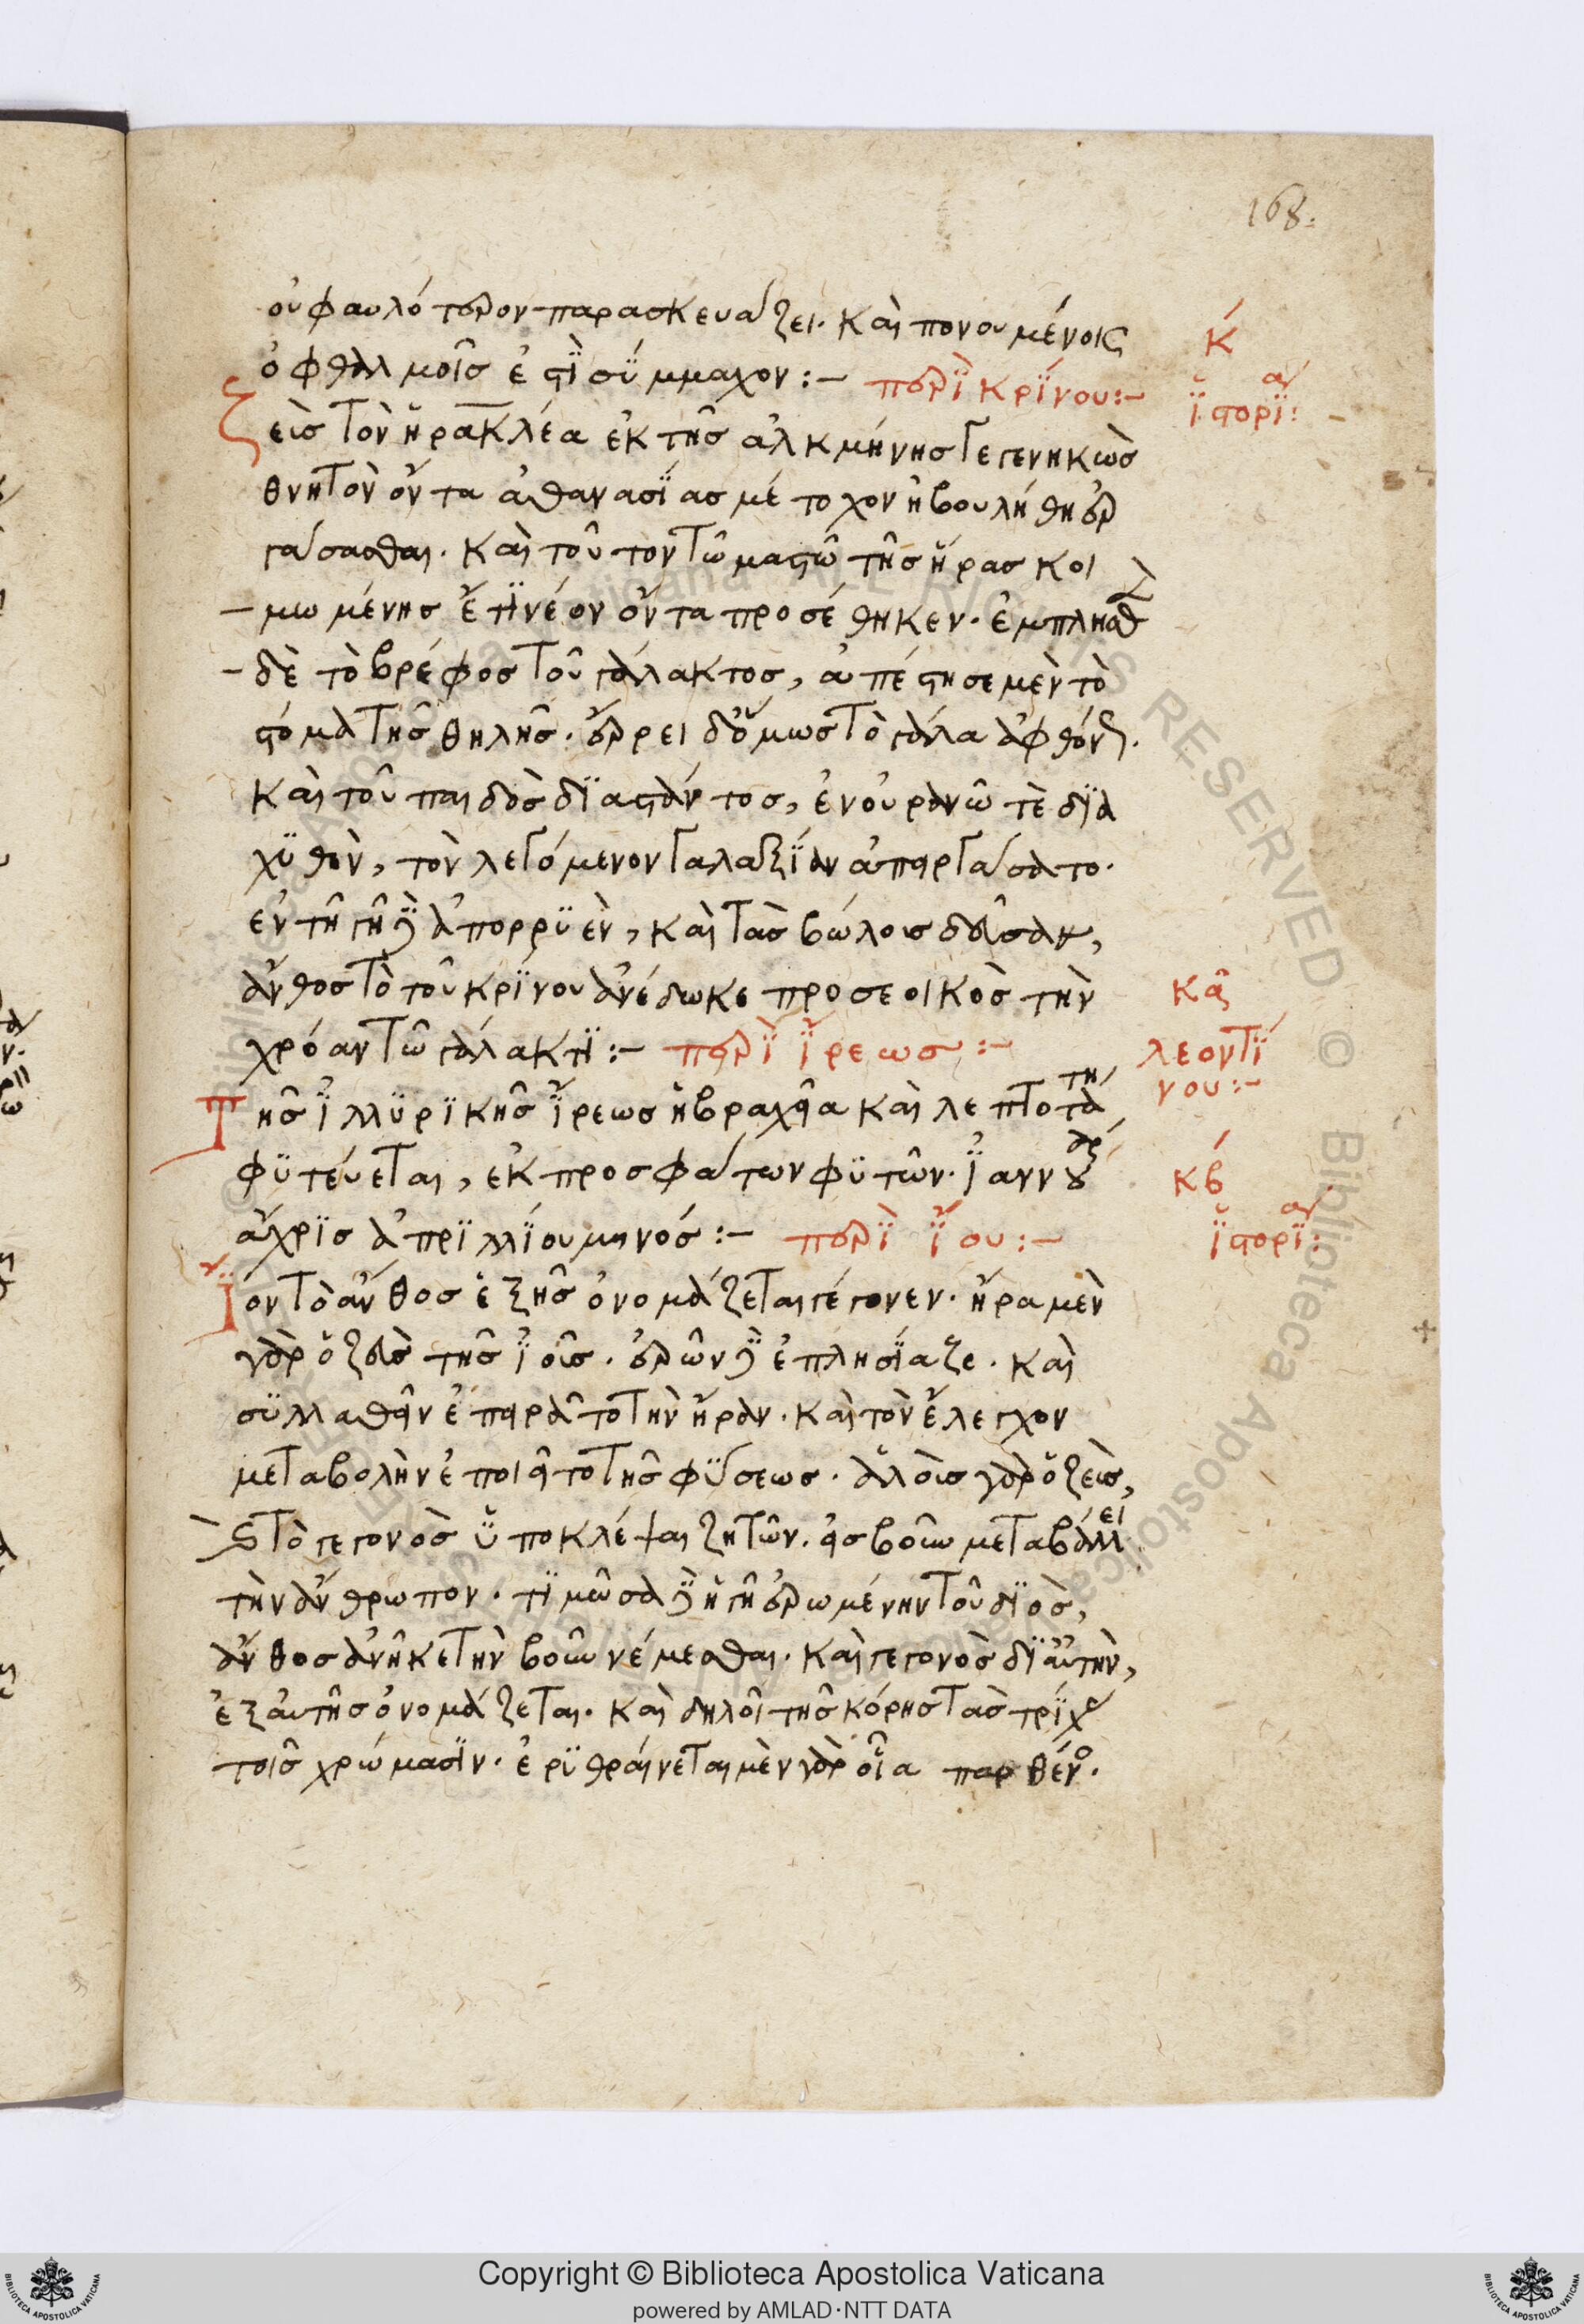 168:
οὐ φαυλότερον παρασκευάζει. καὶ πονουμένοις
κ́
ὀφθαλμοῖσ ἐστῒ σΰμμαχον :— περῒ κρΐνου :—
ἱ̈στορΐα:
Ζεὺσ τὸν ἡρακλέα ἐκ τῆσ ἀλκμήνησ γεγενηκὼσ
θνητὸν ὄντα ἀθανασΐασ μέτοχον ἠβουλήθη ἐρ
γάσασθαι. καὶ τοῦτον τῶ μαστῶ τῆσ ἥρασ κοι
μωμένησ ἔτϊ νέον ὄντα προσέθηκεν. ἐμπλησθὲν
δὲ τὸ βρέφοσ τοῦ γάλακτοσ, ἀπέστησε μὲν τὸ
στόμα τῆσ θηλῆσ. ἔρρει δ' ὅμωσ τὸ γάλα ἀφθόνως.
καὶ τοῦ παιδὸσ δϊαστάντοσ, ἐν οὐρανῶ τὲ δϊα
χϋθὲν, τὸν λεγόμενον γαλαξΐαν ἀπειργάσατο.
ἐν τῆ γῆ δὲ ἀπορρϋὲν, καὶ τὰσ βώλουσ δεῦσαν,
ἄνθοσ τὸ τοῦ κρΐνου ἀνέδωκε προσεοικὸσ τὴν
κα
χρόαν τῶ γάλακτϊ :— περῒ ἴρεωσ :—
λεοντΐ
νου :—
Τῆσ ἰ̈λλϋρϊκῆσ ἴρεωσ ἡ βραχεῖα καὶ λεπτοτάτη
φϋτεύεται, ἐκ προσφάτων φϋτῶν. ἰ̈αννουαρΐου
κβ
ἄχρϊσ ἀπρϊλλΐου μηνόσ :— περῒ ἴου :—
ἱ̈στορΐα:
Ἴον τὸ ἄνθοσ ἑξῆσ ὀνομάζεται γέγονεν. ἥρα μὲν
γὰρ ὁ ζεὺσ τῆσ ἰ̈οῦσ. ἐρῶν δὲ ἐπλησΐαζε. καὶ
σϋλλαθεῖν ἐπειρᾶτο τὴν ἥραν. καὶ τὸν ἔλεγχον
μεταβολὴν ἐποιεῖτο τῆσ φΰσεωσ. ἁλοὺσ γὰρ ὁ ζεὺσ,
καὶ τὸ γεγονὸσ ϋ̔ποκλέψαι ζητῶν. εἰσ βοῦν μεταβάλλει
τὴν ἄνθρωπον. τϊμῶσα δὲ ἡ γῆ ἐρωμένην τοῦ δϊὸσ,
ἄνθοσ ἀνῆκε τὴν βοῦν νέμεσθαι. καὶ γεγονὸσ δϊ' αὐτὴν,
ἐξ αὐτῆσ ὀνομάζεται. καὶ δηλοῖ τῆσ κόρησ τὰσ τρΐχας
τοῖσ χρώμασϊν. ἐρϋθραίνεται μὲν γὰρ οἷα παρθένος.
Copyright © Biblioteca Apostolica Vaticana
powered by AMLAD·NTT DATA